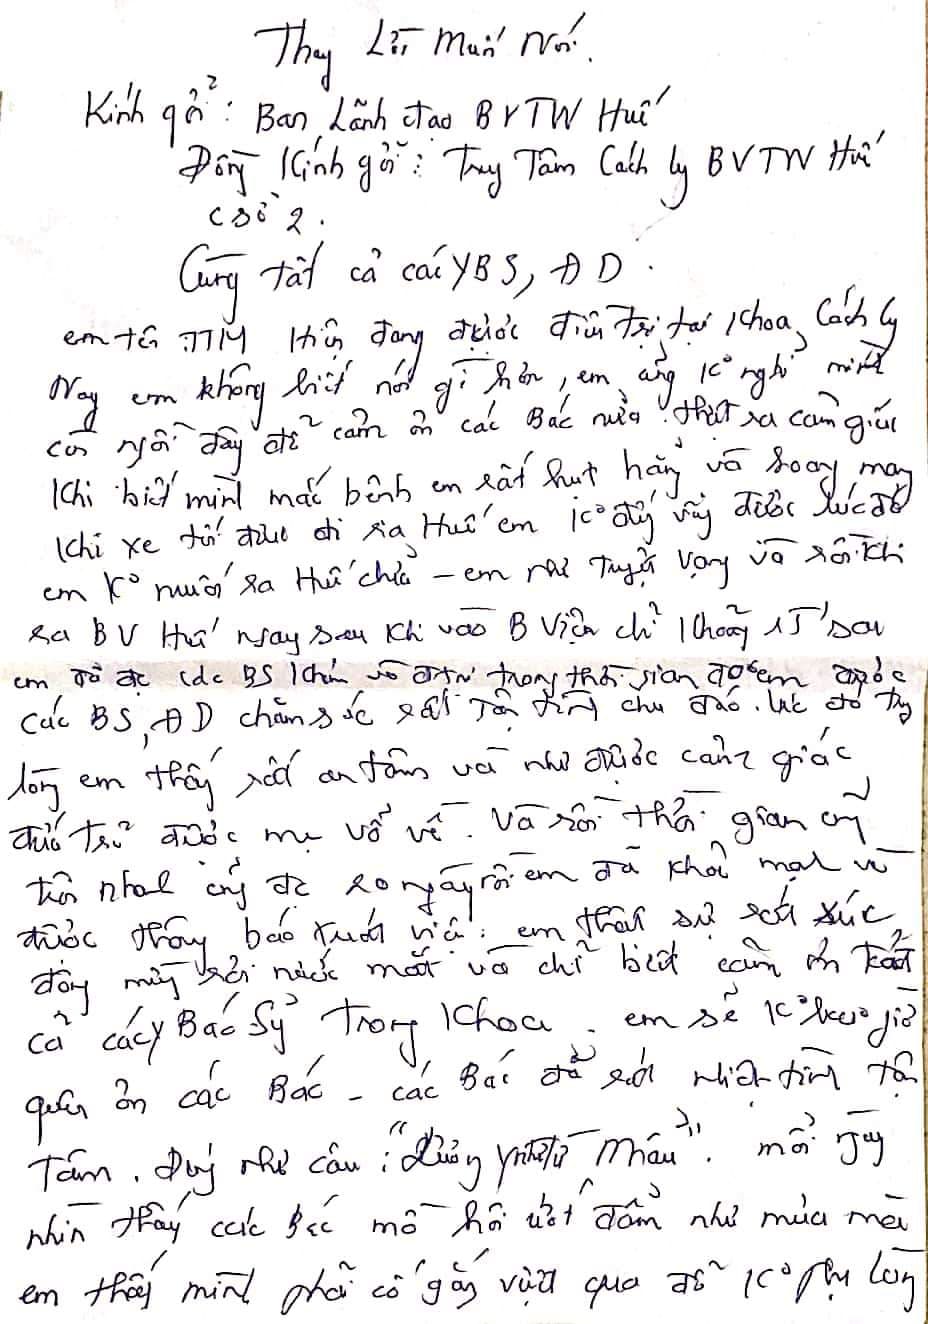 Thay Lời Muốn Nói.
Kính gởi: Ban Lãnh đạo BVTW Huế
Đồng Kính gởi: Trug Tâm Cách ly BVTW Huế
cơ sở 2.
Cùng tất cả các Y BS, ĐD.
em tên TTM Hiện đang được điều trị tại Khoa Cách ly
Nay em không biết nói gì hơn, em cũng ko nghỉ mình
còn ngồi đây để cảm ơn các Bác nữa. thật ra cảm giác
Khi biết mình mắc bệnh em rất hụt hẳng và hoang mang
Khi xe tới đưa đi ra Huế em ko đứng vững được lúc đó
em ko muốn ra Huế chút - em như tuyệt vọng và rồi khi
ra BV Huế ngay sau khi vào B Viện chỉ Khoảng 15' sau
em đã đc các BS Khám và điều trị trong thời gian đó em được
các BS, ĐD chăm sóc rất tận tình chu đáo. lúc đó trong
lòng em thấy rất an tâm và như được cảm giác
đứa trẻ được mẹ vổ về. Và rồi thời gian cũng
trôi nhanh cũng đc 20 ngày rồi em đã khỏe mạnh và
được thông báo xuất viện. em thật sự rất xúc
động mừng rơi nước mắt và chỉ biết cảm ơn tất
cả các y Bác Sỷ trong Khoa. em sẽ ko bao giờ
quên ơn các Bác - các Bác đã rất nhiệt tình tận
Tâm. Đúng như câu: "Lương y như từ Mẫu". mỗi ngày
nhìn thấy các Bác mồ hôi ướt đẩm như mưa mà
em thấy mình phải cố gắng vượt qua để ko phụ lòng